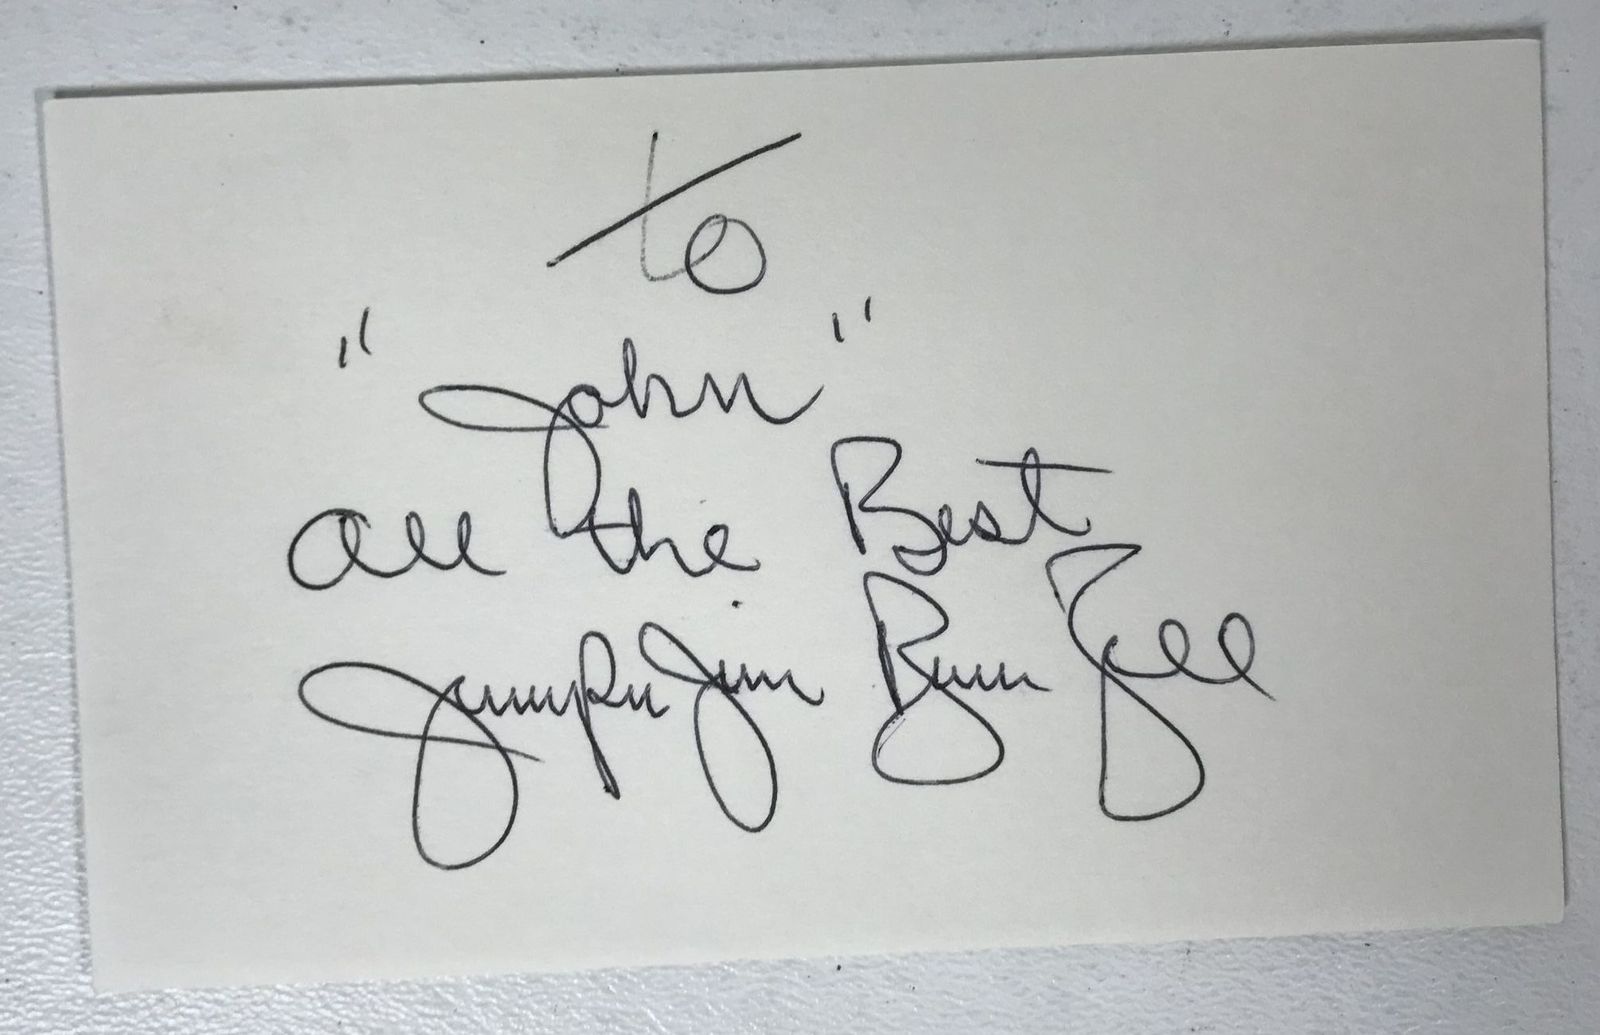 to
"John"
all the Best
Jumpin Jim Bunn Zell